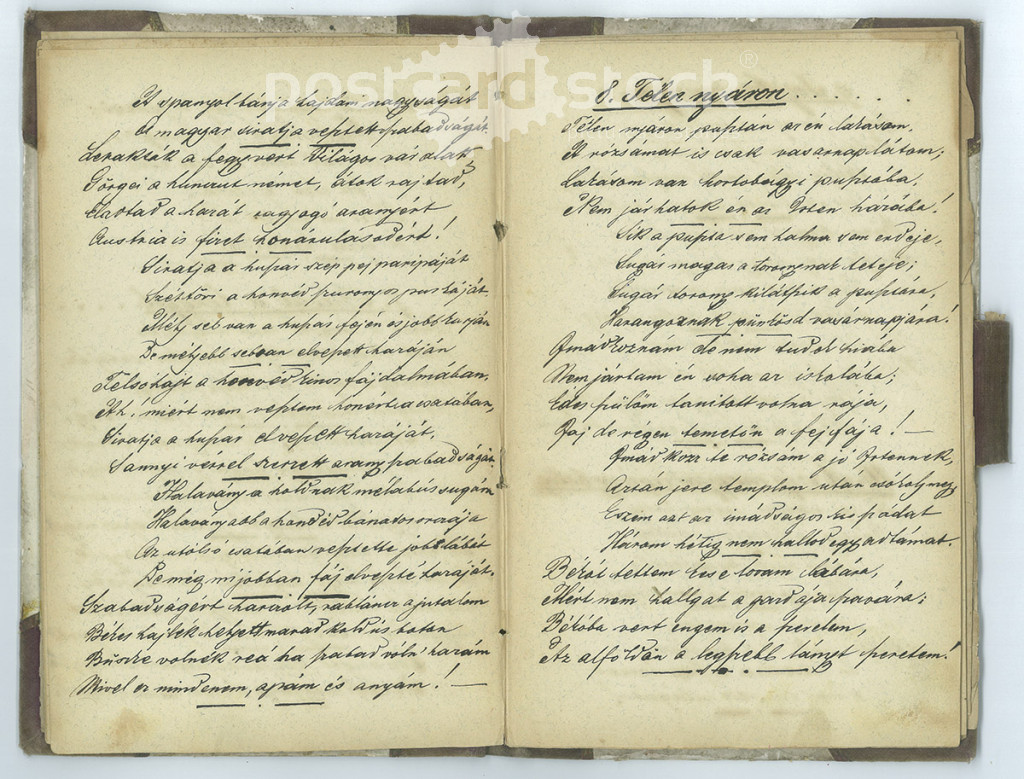 A spanyol bánja hajdani nagyságát
A magyar siratja vesztett szabadságát
Lerakták a fegyvert Világos vár alatt,
Görgei a huncut német, átok rajtad,
Eladtad a hazát ragyogó aranyért
Austria is fizet honárulásodért!
Siratja a huszár szép pej paripáját
Széttöri a honvéd szuronyos puskáját.
Mély seb van a huszár fején és jobb karján
De mélyebb seb van elveszett hazáján
Felsóhajt a honvéd kinos fájdalmában,
Ah! miért nem vesztem honért a csatában,
Siratja a huszár elveszett hazáját,
Sannyi vérrel szerzett arany szabadságát.
Halavány a holdnak mélabús sugára
Halaványabb a honvéd bánatos orczája
Az utolsó csatában vesztette jobb lábát
De még mi jobban fáj elveszté hazáját.
Szabadságért harczolt, rabláncz a jutalom
Béres hajlék helyett marad koldús botom
Büszke volnék reá ha szabad voln' hazám
Mivel ez mindenem, apám és anyám! —
postcard stock ®
8. Télen nyáron . . . . . .
Télen nyáron pusztán az én lakásom,
A rózsámat is csak vasarnap látom;
Lakásom van hortobágyi pusztába,
Nem járhatok én az Isten házába!
Sík a puszta sem halma sem erdeje,
Sugár magas a toronynak teteje;
Sugár torony kilátszik a pusztára,
Harangoznak pünkösd vasárnapjára!
Imádkoznám de nem tudok hiába
Nem jártam én soha az iskolába;
Édes szülöm tanitott volna rája,
Jaj de régen temetőn a fejfája! —
Imádkozz te rózsám a jó Istennek,
Aztán jere templom után csókolj meg
Eszem azt az imádságos kis szádat
Három hétig nem hallod egy adtámat.
Békót tettem Kese lovam lábára,
Mért nem hallgat a gazdája szavára;
Békóba vert engem is a szeretem,
Az alföldön a legszebb lányt szeretem!